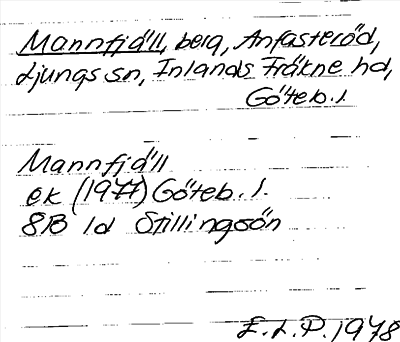 Mannfjäll, berg, Anfasteröd,
Ljungs sn, Inlands Fräkne hd,
Göteb. l.
Mannfjäll
ek (1977) Göteb. l.
8B 1d Stillingsön
E. L. P. 1978